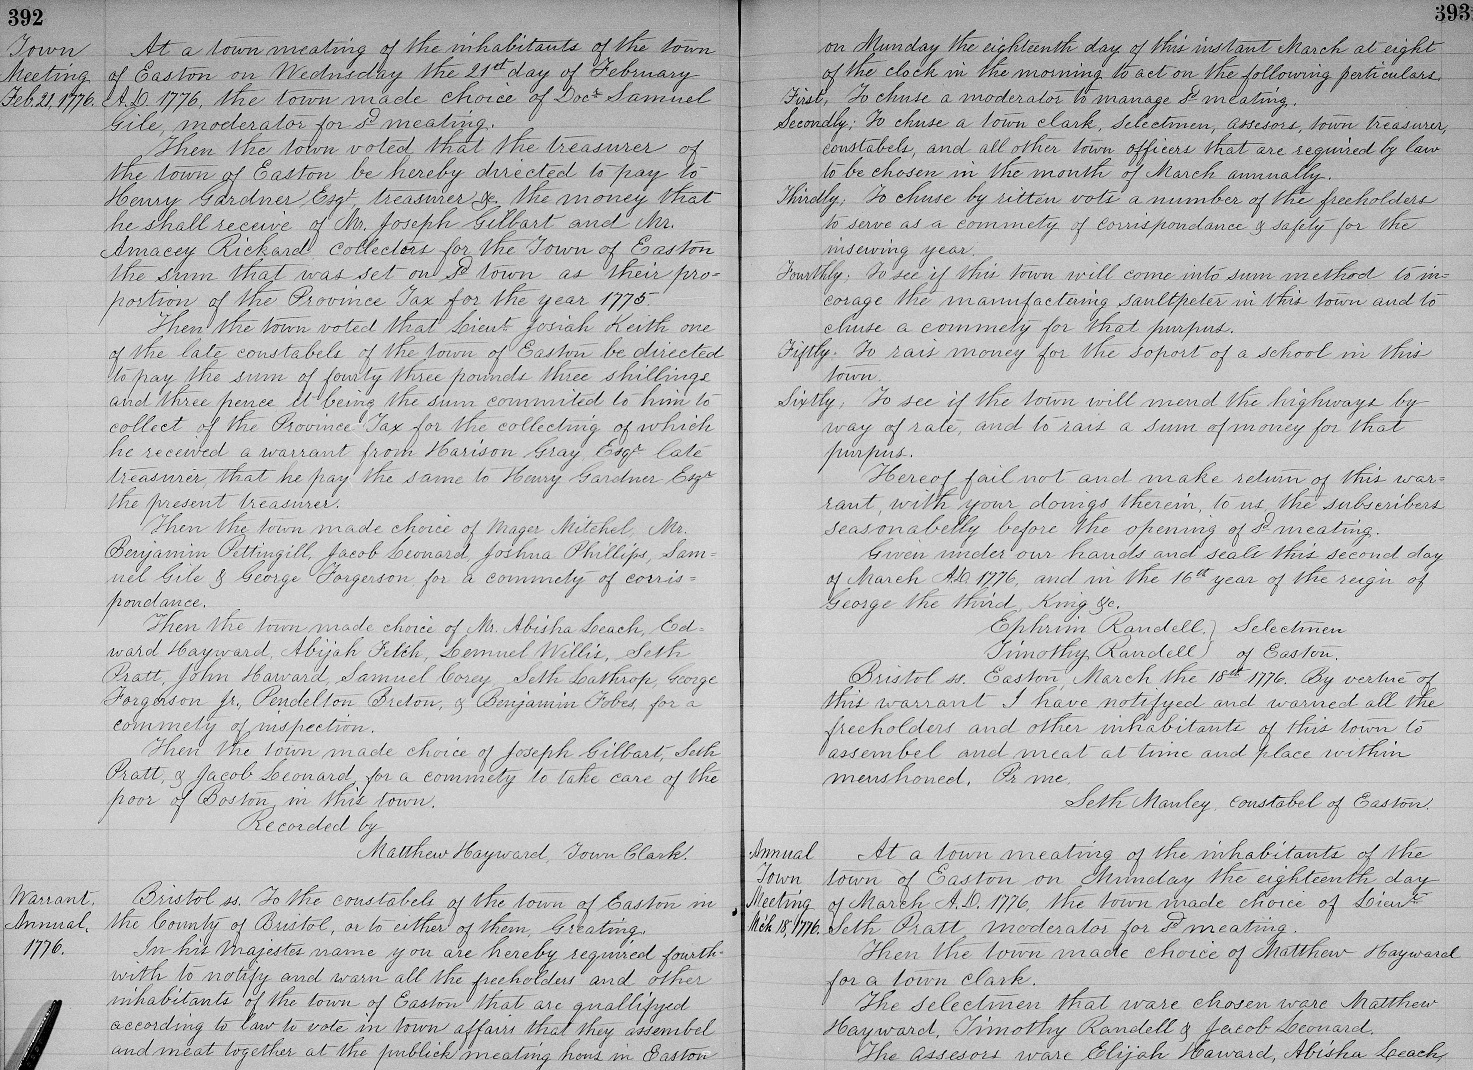 392
Town
Meeting
Feb. 21, 1776.
At a town meating of the inhabitants of the town
of Easton on Wednsday the 21st day of February
A.D. 1776, the town made choice of Docr Samuel
Gile, moderator for sd meating.
Then the town voted that the treasurer of
the town of Easton be hereby directed to pay to
Henry Gardner, Esqr, treasurer &c. the money that
he shall receive of Mr. Joseph Gilbart and Mr.
Amacey Rickard collectors for the Town of Easton
the sum that was set on sd town as their pro=
portion of the Province Tax for the year 1775.
Then the town voted that Lieut. Josiah Keith one
of the late constabels of the town of Easton be directed
to pay the sum of fourty three pounds three shillings
and three pence it being the sum commited to him to
collect of the Province Tax for the collecting of which
he received a warrant from Harison Gray, Esqr late
treasurer, that he pay the same to Henry Gardner Esqr
the present treasurer.
Then the town made choice of Mager Mitchel, Mr.
Benjamin Pettingill, Jacob Leonard, Joshua Phillips, Sam=
uel Gile & George Forgerson, for a commety of corris=
pondance.
Then the town made choice of Mr. Abisha Leach, Ed=
ward Hayward, Abijah Fetch, Lemuel Willis, Seth
Pratt, John Haward, Samuel Corey, Seth Lathrop, George
Forgerson Jr., Pendelton Breton, & Benjamin Fobes, for a
commety of inspection.
Then the town made choice of Joseph Gilbart, Seth
Pratt, & Jacob Leonard, for a commety to take care of the
poor of Boston, in this town.
Recorded by
Matthew Hayward, Town Clark.
Warrant.
Annual.
1776.
Bristol ss. To the constabels of the town of Easton in
the County of Bristol, or to either of them, Greating.
In his Majestes name you are hereby required fourth=
with to notify and warn all the freeholders and other
inhabitants of the town of Easton that are quallifyed
according to law to vote in town affairs that they assembel
and meat together at the publick meating hous in Easton
393
on Munday the eighteenth day of this instant March at eight
of the clock in the morning to act on the following perticulars.
First, To chuse a moderator to manage sd meating.
Secondly; To chuse a town clark, selectmen, assesors, town treasurer,
constabels, and all other town officers that are required by law
to be chosen in the month of March annually.
Thirdly; To chuse by ritten vots a number of the freeholders
to serve as a commety of corrispondance & safety for the
insewing year.
Fourthly; To see if this town will come into sum method to in=
corage the manufactering saultpeter in this town and to
chuse a commety for that purpus.
Fiftly: To rais money for the soport of a school in this
town.
Sixtly; To see if the town will mend the highways by
way of rate, and to rais a sum of money for that
purpus.
Hereof fail not and make return of this war=
rant, with your doings therein, to us, the subscribers
seasonabelly before the opening of sd meating.
Given under our hands and seals this second day
of March A.D. 1776, and in the 16th year of the reign of
George the third, King &c.
Ephrim Randell, } Selectmen
Timothy Randell } of Easton.
Bristol ss. Easton, March the 18th 1776. By vertue of
this warrant I have notifyed and warned all the
freeholders and other inhabitants of this town to
assembel and meat at time and place within
menshoned. Pr me,
Seth Manley, constabel of Easton.
Annual
Town
Meeting
Mch 18, 1776.
At a town meating of the inhabitants of the
town of Easton on Munday the eighteenth day
of March A.D. 1776, the town made choice of Lieut
Seth Pratt, moderator for sd meating.
Then the town made choice of Matthew Hayward
for a town clark.
The selectmen that ware chosen ware Matthew
Hayward, Timothy Randell & Jacob Leonard.
The assesors ware Elijah Haward, Abisha Leach,